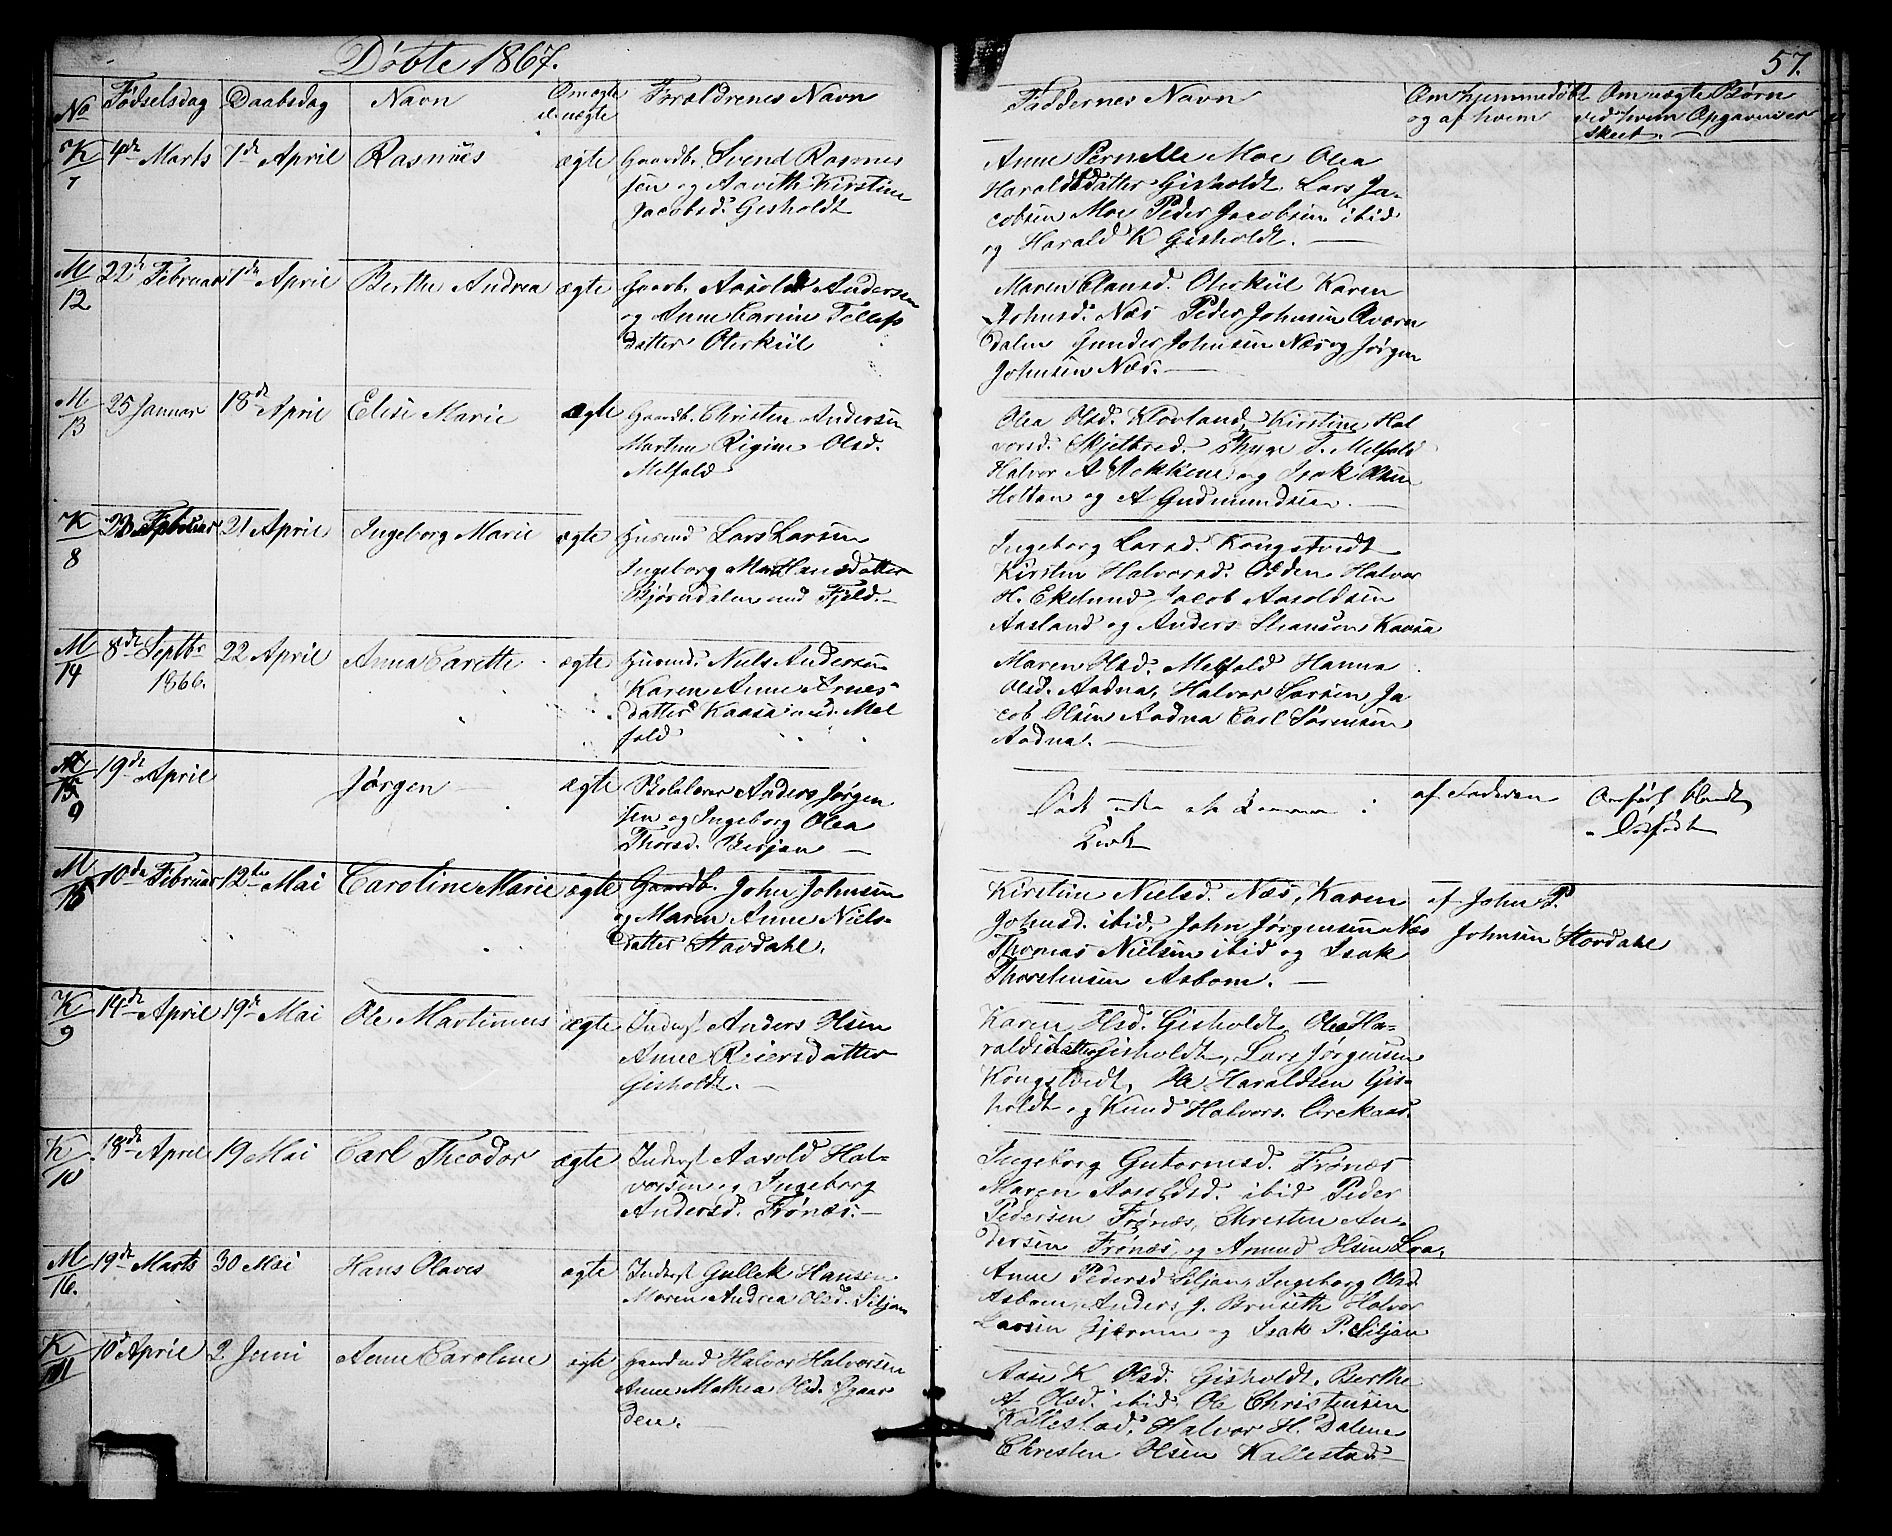 Døbte 1867.
57.
No Fødselsdag Daabsdag Navn Om ægte el. uægte Forældrenes Navn Faddernes Navn Om hjemmedøbt og af hvem Om uægte Børn ved hvem Opgavener skeet.
K 7 4de Marts 7de April Rasmus ægte Gaardb. Svend Rasmes
sen og Kirstine
Jacobsd. Gisholdt
Anne Pernelle Moe Olea
Haraldsdatter Gisholdt Lars Ja-
cobsen Moe Peder Jacobsen ibid
og Harald K Gisholdt.
M 12 22de Februar 1de April Berthe Andrea ægte Gaardb. Aasold Andersen
og Anne Carine Tellefs
datter Oterkiil
Maren Clausd. Oterkiil Karen
Johnsd. Næs Peder Johnsen
dalen Gunder Johnsen Næs og Jørgen
Johnsen Næs.
M 13 25 Januar 18de April Elise Marie ægte Gaardb. Christen Andersen
Martine Rigine Olsd.
Melfald
Olea Olsd. Klovland, Kirstine Hal
vorsd. Thyge T. Melfald
Halvor A og Isak Olsen
Holtan og A Gudmundsen.
K 8 Februar 21 April Ingeborg Marie ægte Husmd Lars Larsen
Ingeborg Mar Hansdatter
Bjørndalen und Fjeld.
Ingeborg Larsd. Kongstvedt
Kirsten Halvorsd. Odden Halvor
H. Ekelund Jacob Aasoldsen
Aasland og Anders Kaasa
M 14 8de Septbr 1866. 22 April Anna Carette ægte Husmd: Niels Andersen
Karen Anne Arnes-
datter Kaasa und. Mel
fald
Maren Olsd. Melfald Hanna
Olsd. Aadna, Halvor Larsen Ja
cob Olsen Aadna Carl Sørensen
Aadna.
9 19de April Jørgen ægte Skolelærer Anders Jørgen
sen og Ingeborg Olea
Thorsd. Besjan
af Faderen
Anført blandt
Dødfødt
M 15 10de Februar 12te Mai Caroline Marie ægte Gaardb. John Johnsen
og Maren Anne Niels-
datter Stavdahl.
Kirstine Nielsd. Næs, Karen
Johnsd. ibid, John Jørgensen Næs
Thomas Nielsen ibid og Isak
Asbom.
af John P.
Johnsen Stavdahl
K 9 14de April 19de Mai Ole Martinius ægte Inderst Anders Olsen
Anne Reiersdatter
Gisholdt.
Karen Olsd. Gisholdt, Olea Ha-
raldsdatter Gisholdt, Lars Jørgensen
Kongstvedt, Ole Haraldsen Gis-
holdt og Knud Halvors.
K 10 18de April 19 Mai Carl Theodor ægte Inderst Aasold Hal-
vorsen og Ingeborg
Andersd. Frønæs.
Ingeborg Gutormsd. Frønæs
Maren Aasoldsd. ibid Peder
Pedersen Frønæs, Christen An-
dersen Frønæs og Amund Olsen
M 16. 19de Marts 30 Mai Hans Olaves ægte Inderst Gullek Hansen
Maren Andrea Olsd. Siljan
Anne Pedersd Siljan, Ingeborg Olsd
Asbom, Anders J. Bruseth Halvor
Larsen og Isak P. Siljan
K 11 10de April 2 Juni Anne Caroline ægte Gaardmd Halvor Halvorsen
Anne Mathea Olsd. Øgaar
den.
Aase K Olsd. Gisholdt, Berthe
A Olsd. ibid. Ole Christensen
Kallestad, Halvor H. Dalene
Christen Olsen Kallestad